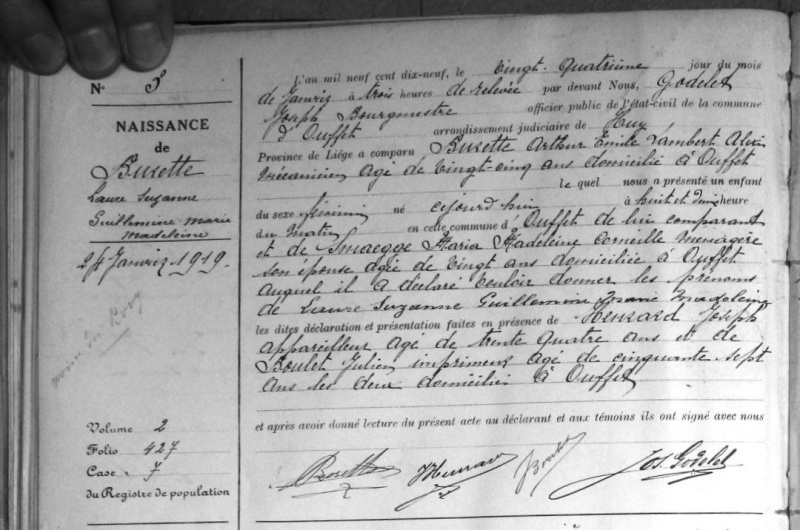 N° 3
NAISSANCE
de
Burette
Laure Suzanne
Guillemine Marie
Madeleine
24 Janvier 1919.
Volume 2
Folio 427
Case 7
du Registre de population
L'an mil neuf cent dix-neuf, le vingt-quatrième jour du mois
de Janvier à trois heures de relevée par devant Nous, Godelet
Joseph Bourgmestre officier public de l'état-civil de la commune
d'Ouffet arrondissement judiciaire de Huy
Province de Liége a comparu Burette Arthur Emile Lambert
mécanicien âgé de vingt-cinq ans domicilié à Ouffet
le quel nous a présenté un enfant
du sexe féminin né cejourd'hui à huit et demie heure
du matin en cette commune d'Ouffet de lui comparant
et de Smaegge Maria Madeleine Corneille ménagère
son épouse âgé de vingt ans domiciliée à Ouffet
auquel il a déclaré vouloir donner les prénoms
de Laure Suzanne Guillemine Marie Madeleine
les dites déclaration et présentation faites en présence de Henrard Joseph
appareilleur âgé de trente quatre ans et de
Boulet Julien imprimeur âgé de cinquante-sept
ans les deux domiciliés à Ouffet
et après avoir donné lecture du présent acte au déclarant et aux témoins ils ont signé avec nous
Burette Henrard J Boulet Jos. Godelet